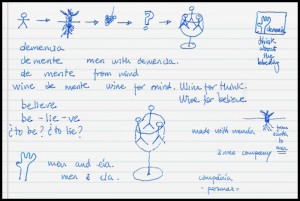 ?
demencia
demente men with demencia.
de mente from mind
wine de mente wine for mind. Wine for think.
Wine for believe.
believe
be - lie - ve
¿to be? ¿to lie?
men and ela.
men & ela.
think
about
the
made with
from
earth to
company
compañia
- personas -